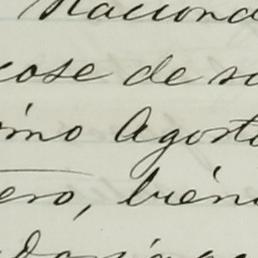 Naciona
cose de su
imo Agosto
ero, bién